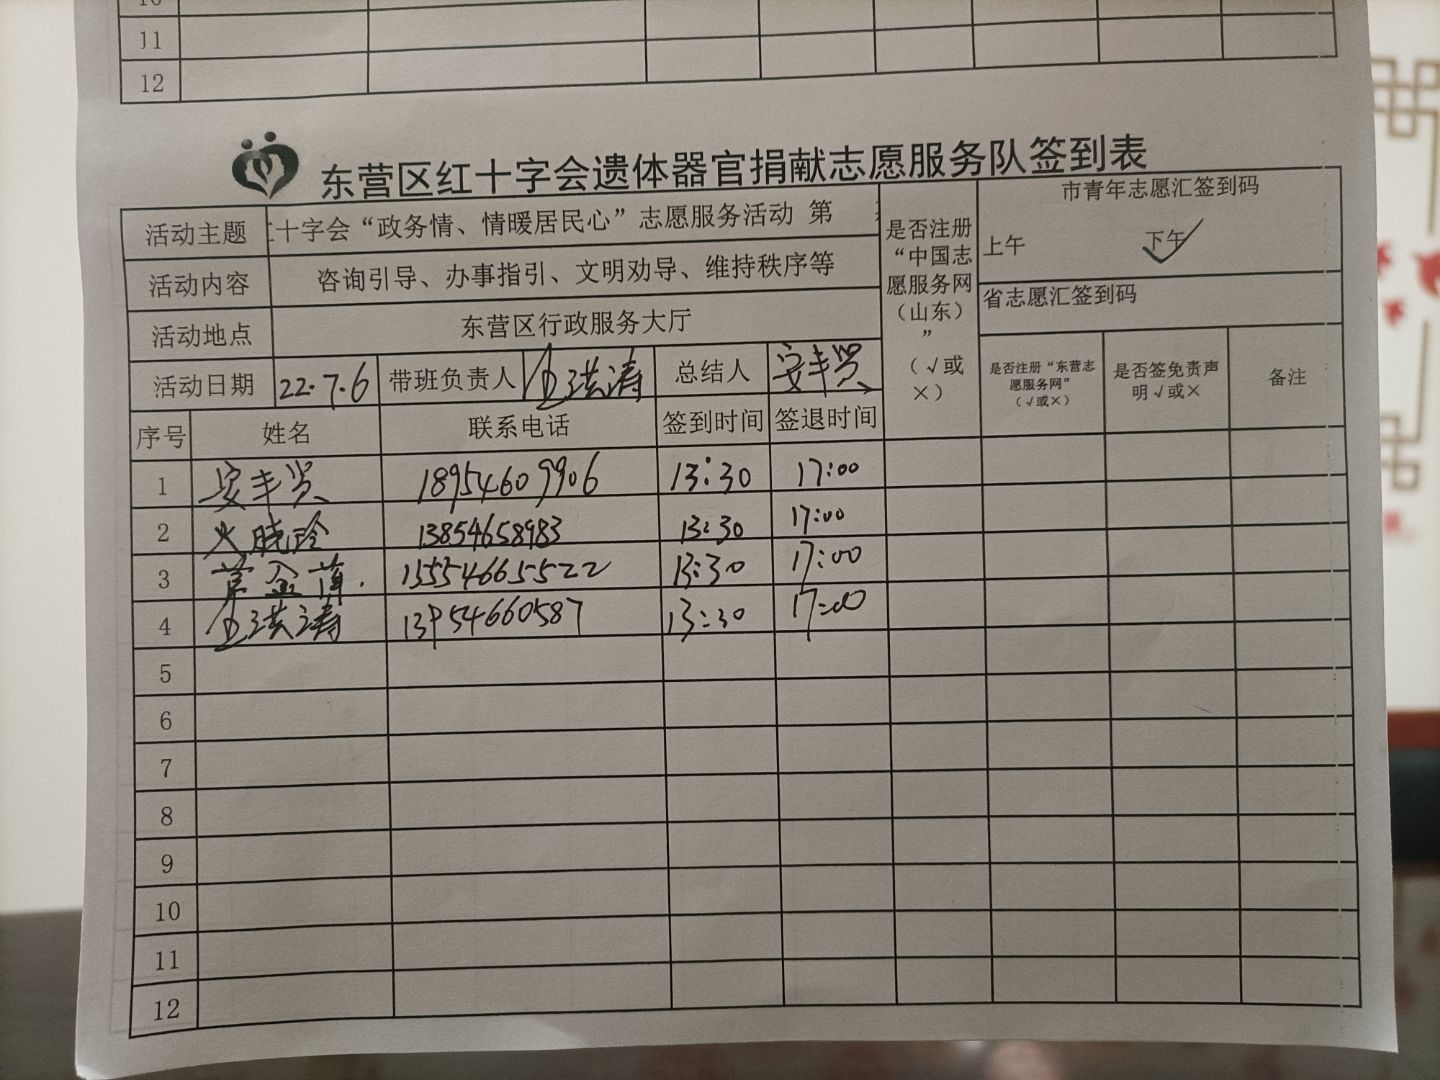 11
12
东营区红十字会遗体器官捐献志愿服务队签到表
活动主题 十字会“政务情、情暖居民心”志愿服务活动 第
是否注册“中国志愿服务网（山东）”（√或×）
市青年志愿汇签到码
上午 下午 √
活动内容 咨询引导、办事指引、文明劝导、维持秩序等
省志愿汇签到码
活动地点 东营区行政服务大厅
活动日期 22.7.6 带班负责人 洪涛 总结人 安丰贤
是否注册“东营志愿服务网”（√或×） 是否签免责声明√或× 备注
序号 姓名 联系电话 签到时间 签退时间
1 安丰贤 18954609906 13:30 17:00
2 晓玲 13854658983 13:30 17:00
3 金 15554665522 13:30 17:00
4 洪涛 13954660587 13:30 17:00
5
6
7
8
9
10
11
12